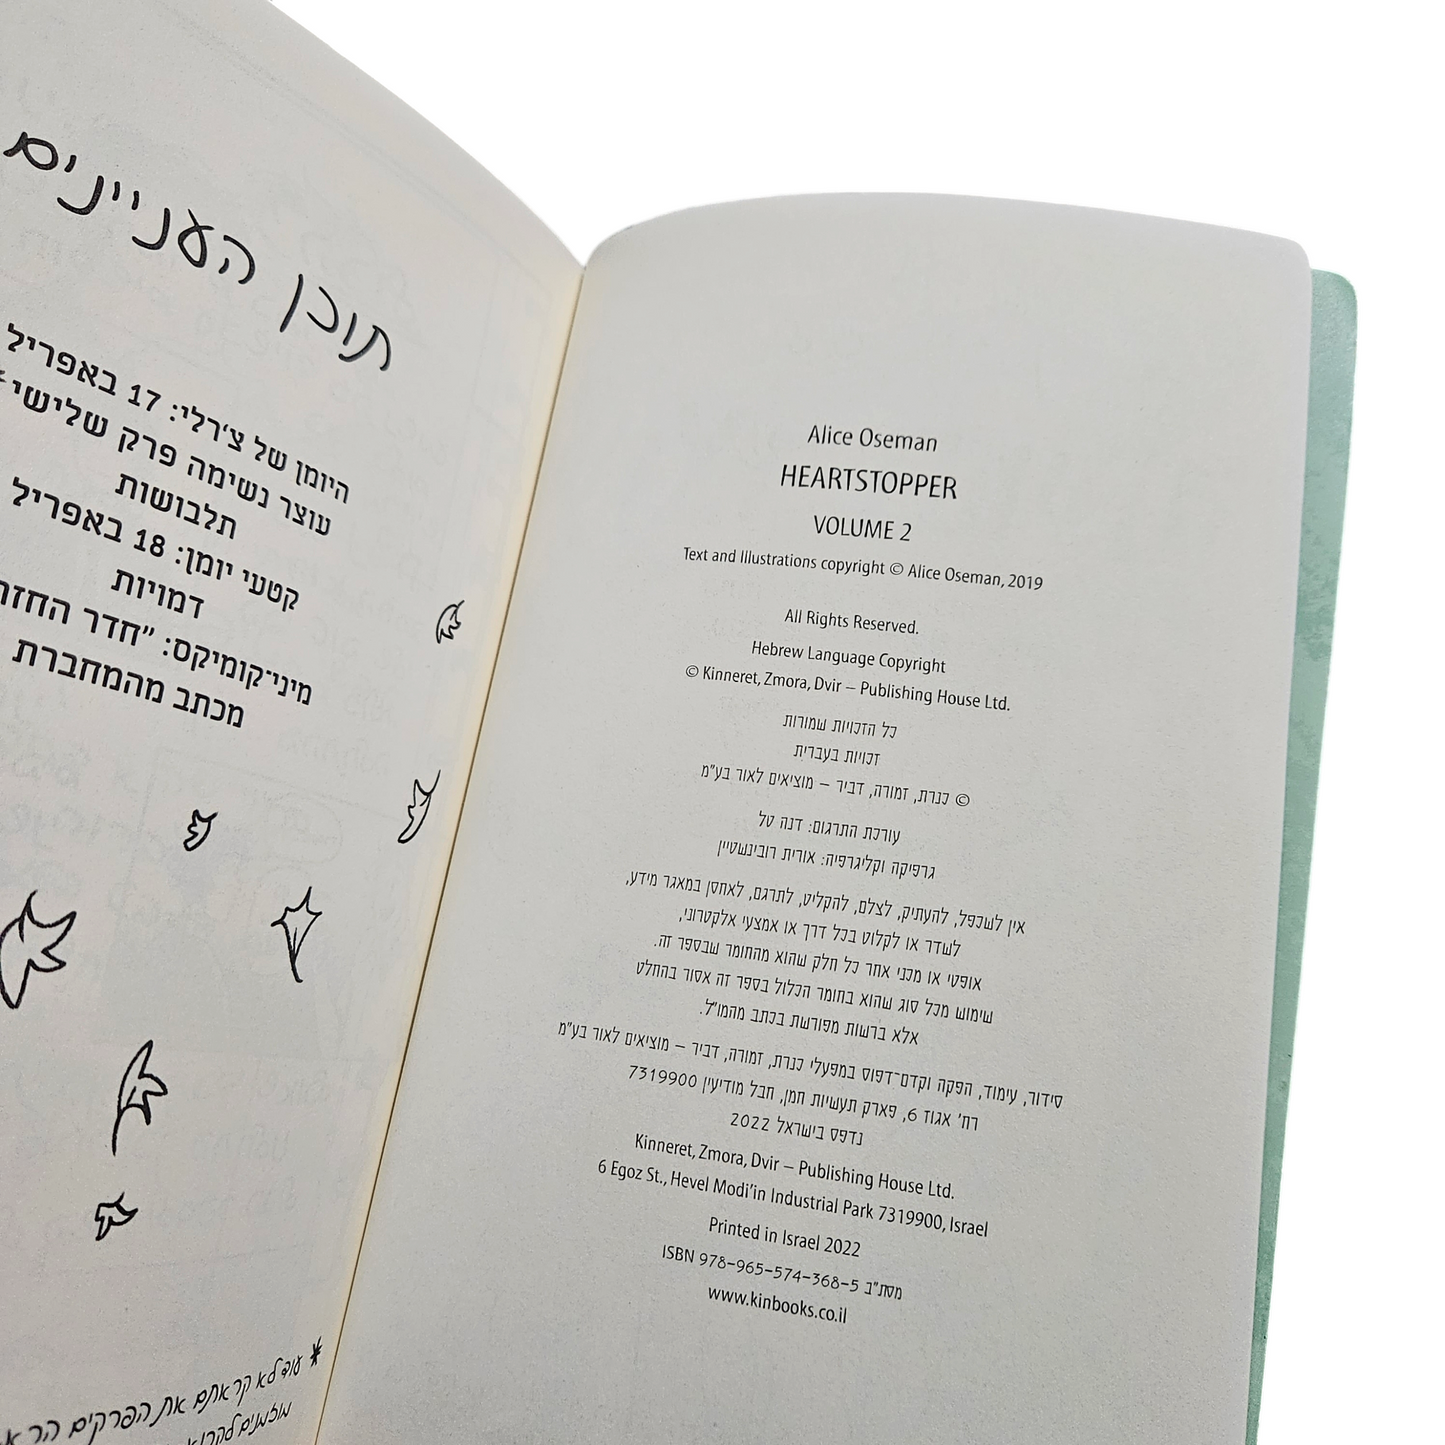 תוכן העניינים
היומן של צ'רלי: 17 באפריל
עוצר נשימה פרק שלישי*
תלבושות
קטעי יומן: 18 באפריל
דמויות
מיני־קומיקס: "חדר
מכתב מהמחברת
* עוד לא קראתם את הפרקים
מוזמנים
Alice Oseman
HEARTSTOPPER
VOLUME 2
Text and Illustrations copyright © Alice Oseman, 2019
All Rights Reserved.
Hebrew Language Copyright
© Kinneret, Zmora, Dvir – Publishing House Ltd.
כל הזכויות שמורות
זכויות בעברית
© כנרת, זמורה, דביר – מוציאים לאור בע"מ
עורכת התרגום: דנה טל
גרפיקה וקליגרפיה: אורית רובינשטיין
אין לשכפל, להעתיק, לצלם, להקליט, לתרגם, לאחסן במאגר מידע,
לשדר או לקלוט בכל דרך או אמצעי אלקטרוני,
אופטי או מכני אחר כל חלק שהוא מהחומר שבספר זה.
שימוש מכל סוג שהוא בחומר הכלול בספר זה אסור בהחלט
אלא ברשות מפורשת בכתב מהמו"ל.
סידור, עימוד, הפקה וקדם־דפוס במפעלי כנרת, זמורה, דביר – מוציאים לאור בע"מ
רח' אגוז 6, פארק תעשיות חמן, חבל מודיעין 7319900
נדפס בישראל 2022
Kinneret, Zmora, Dvir – Publishing House Ltd.
6 Egoz St., Hevel Modi'in Industrial Park 7319900, Israel
Printed in Israel 2022
ISBN 978-965-574-368-5 מסת"ב
www.kinbooks.co.il